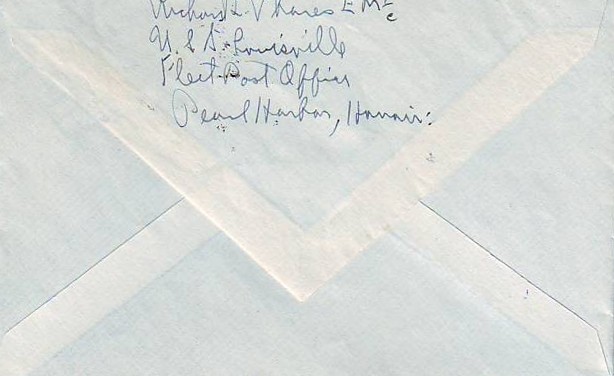 Richard L. V Kares E M 2/c
U.S.S. Louisville
Fleet Post Office
Pearl Harbor, Hawaii: